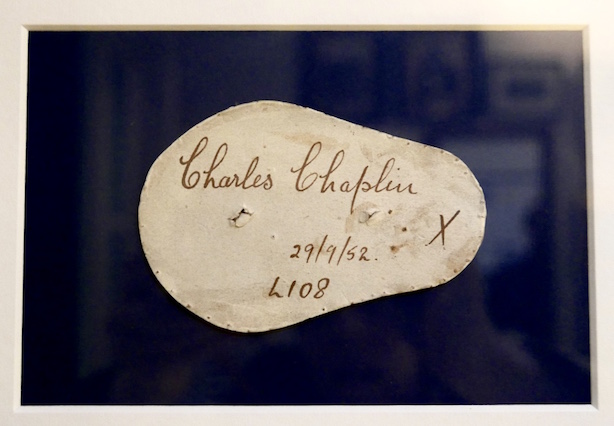 Charles Chaplin
X
29/9/52.
L108